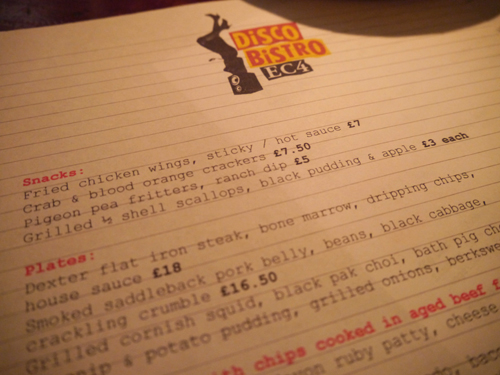 DiSCO
BiSTRO
EC4
Snacks:
Fried chicken wings, sticky / hot sauce £7
Crab & blood orange crackers £7.50
Pigeon pea fritters, ranch dip £5
Grilled ½ shell scallops, black pudding & apple £3 each
Plates:
Dexter flat iron steak, bone marrow, dripping chips,
house sauce £18
Smoked saddleback pork belly, beans, black cabbage,
crackling crumble £16.50
Grilled cornish squid, black pak choi, bath pig
& potato pudding, grilled onions,
with chips cooked in aged beef
ruby patty, cheese